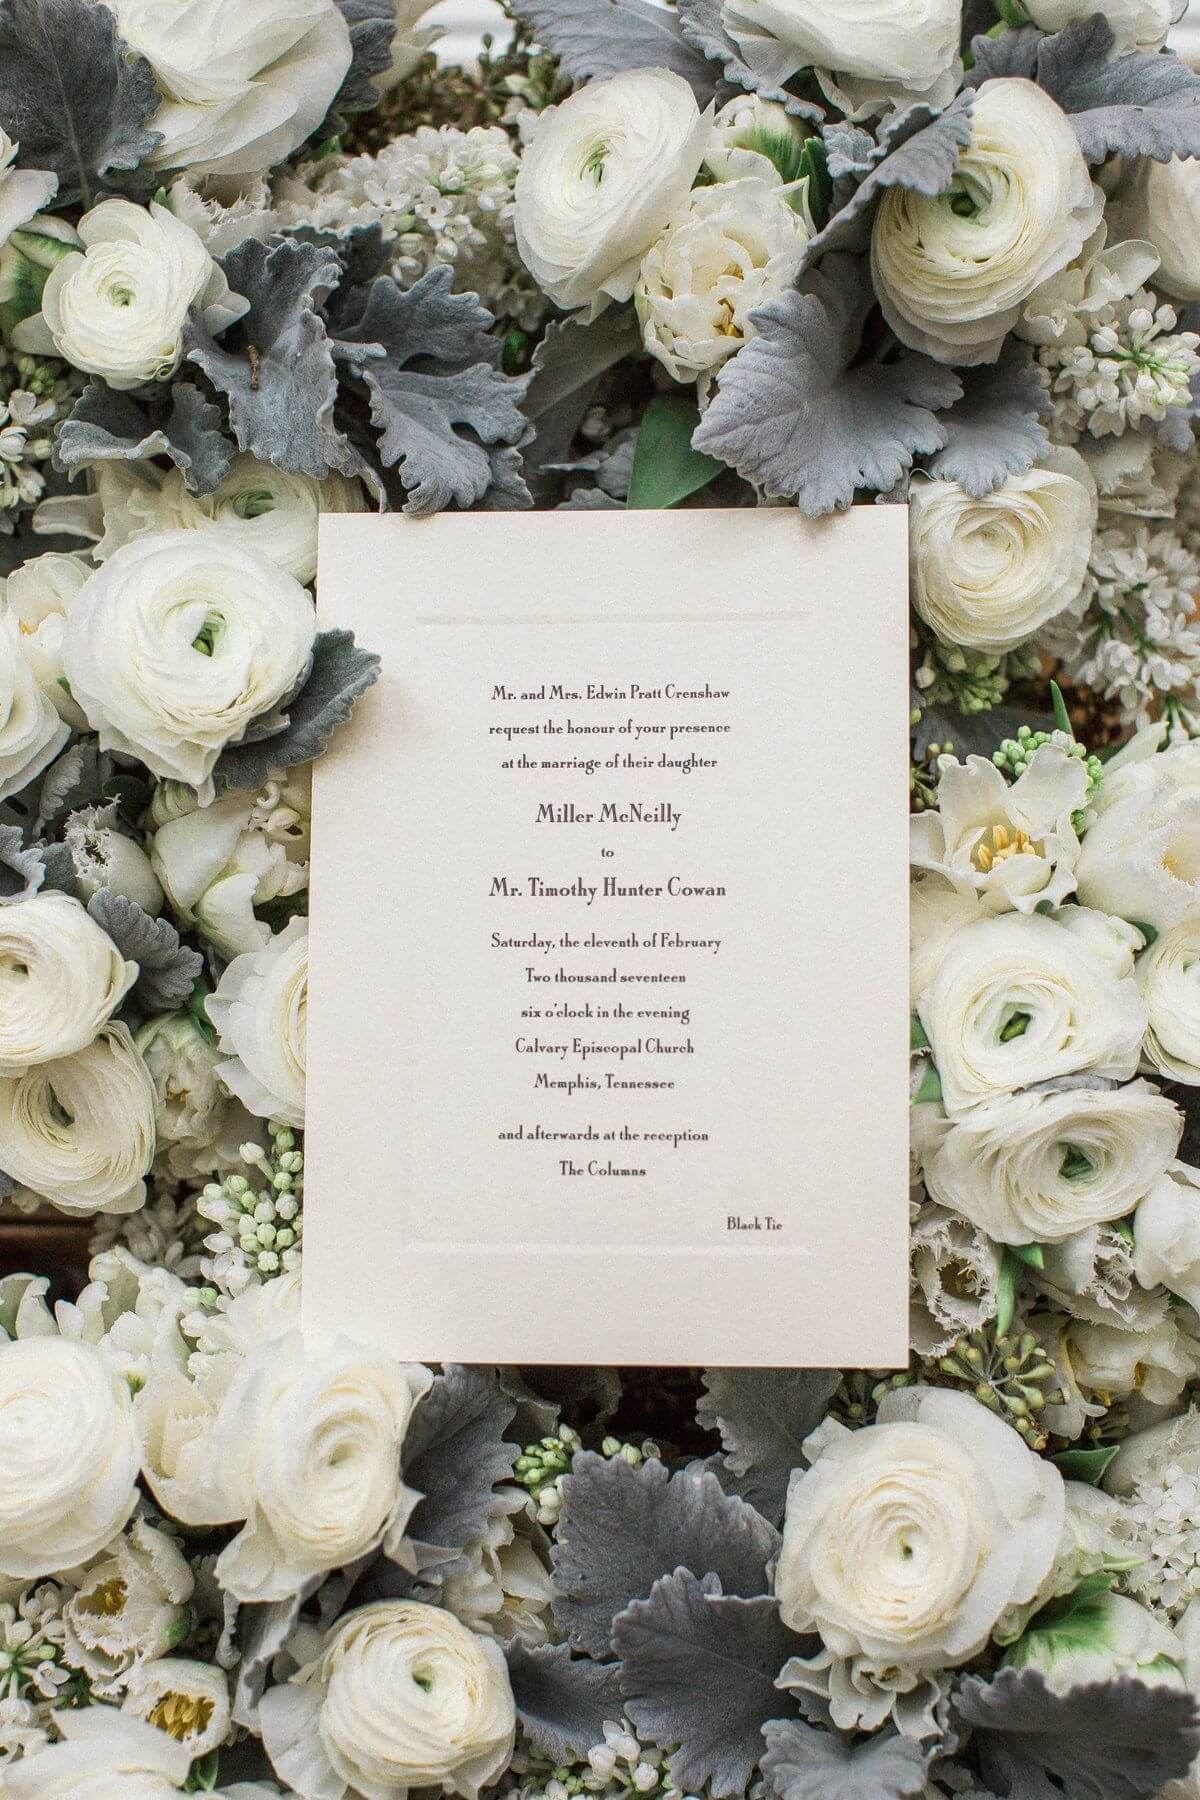 Mr. and Mrs. Edwin Pratt Crenshaw
request the honour of your presence
at the marriage of their daughter
Miller McNeilly
to
Mr. Timothy Hunter Cowan
Saturday, the eleventh of February
Two thousand seventeen
six o'clock in the evening
Calvary Episcopal Church
Memphis, Tennessee
and afterwards at the reception
The Columns
Black Tie